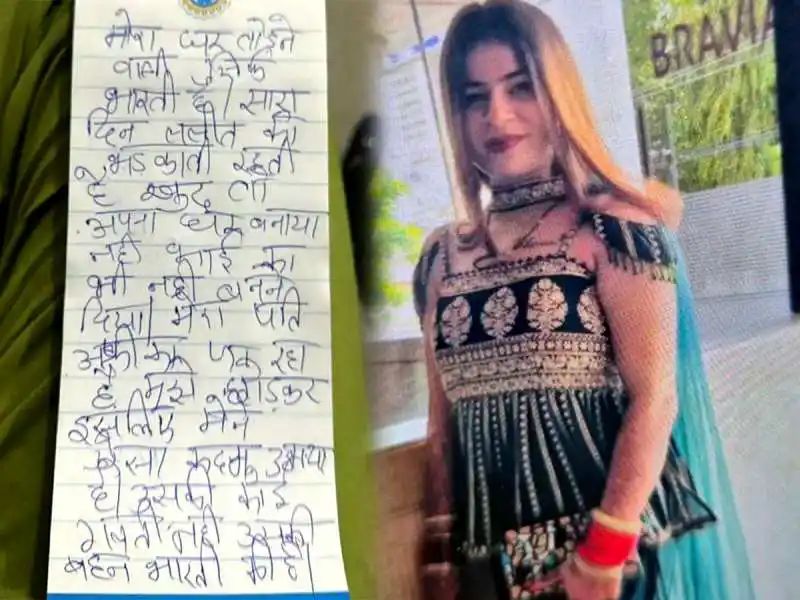 मेरा घर तोड़ने
वाली इसकी
भारती है। सारा
दिन ललीत को
भड़काती रहती
है खुद तो
अपना घर बनाया
नही भाई का
भी नही बनने
दिया। मेरा पति
है मुझे छोड़कर
इसलिए मैने
कदम उठाया
है। इसकी कोई
गलती नही इसकी
बहन भारती की है।
BRAVIA